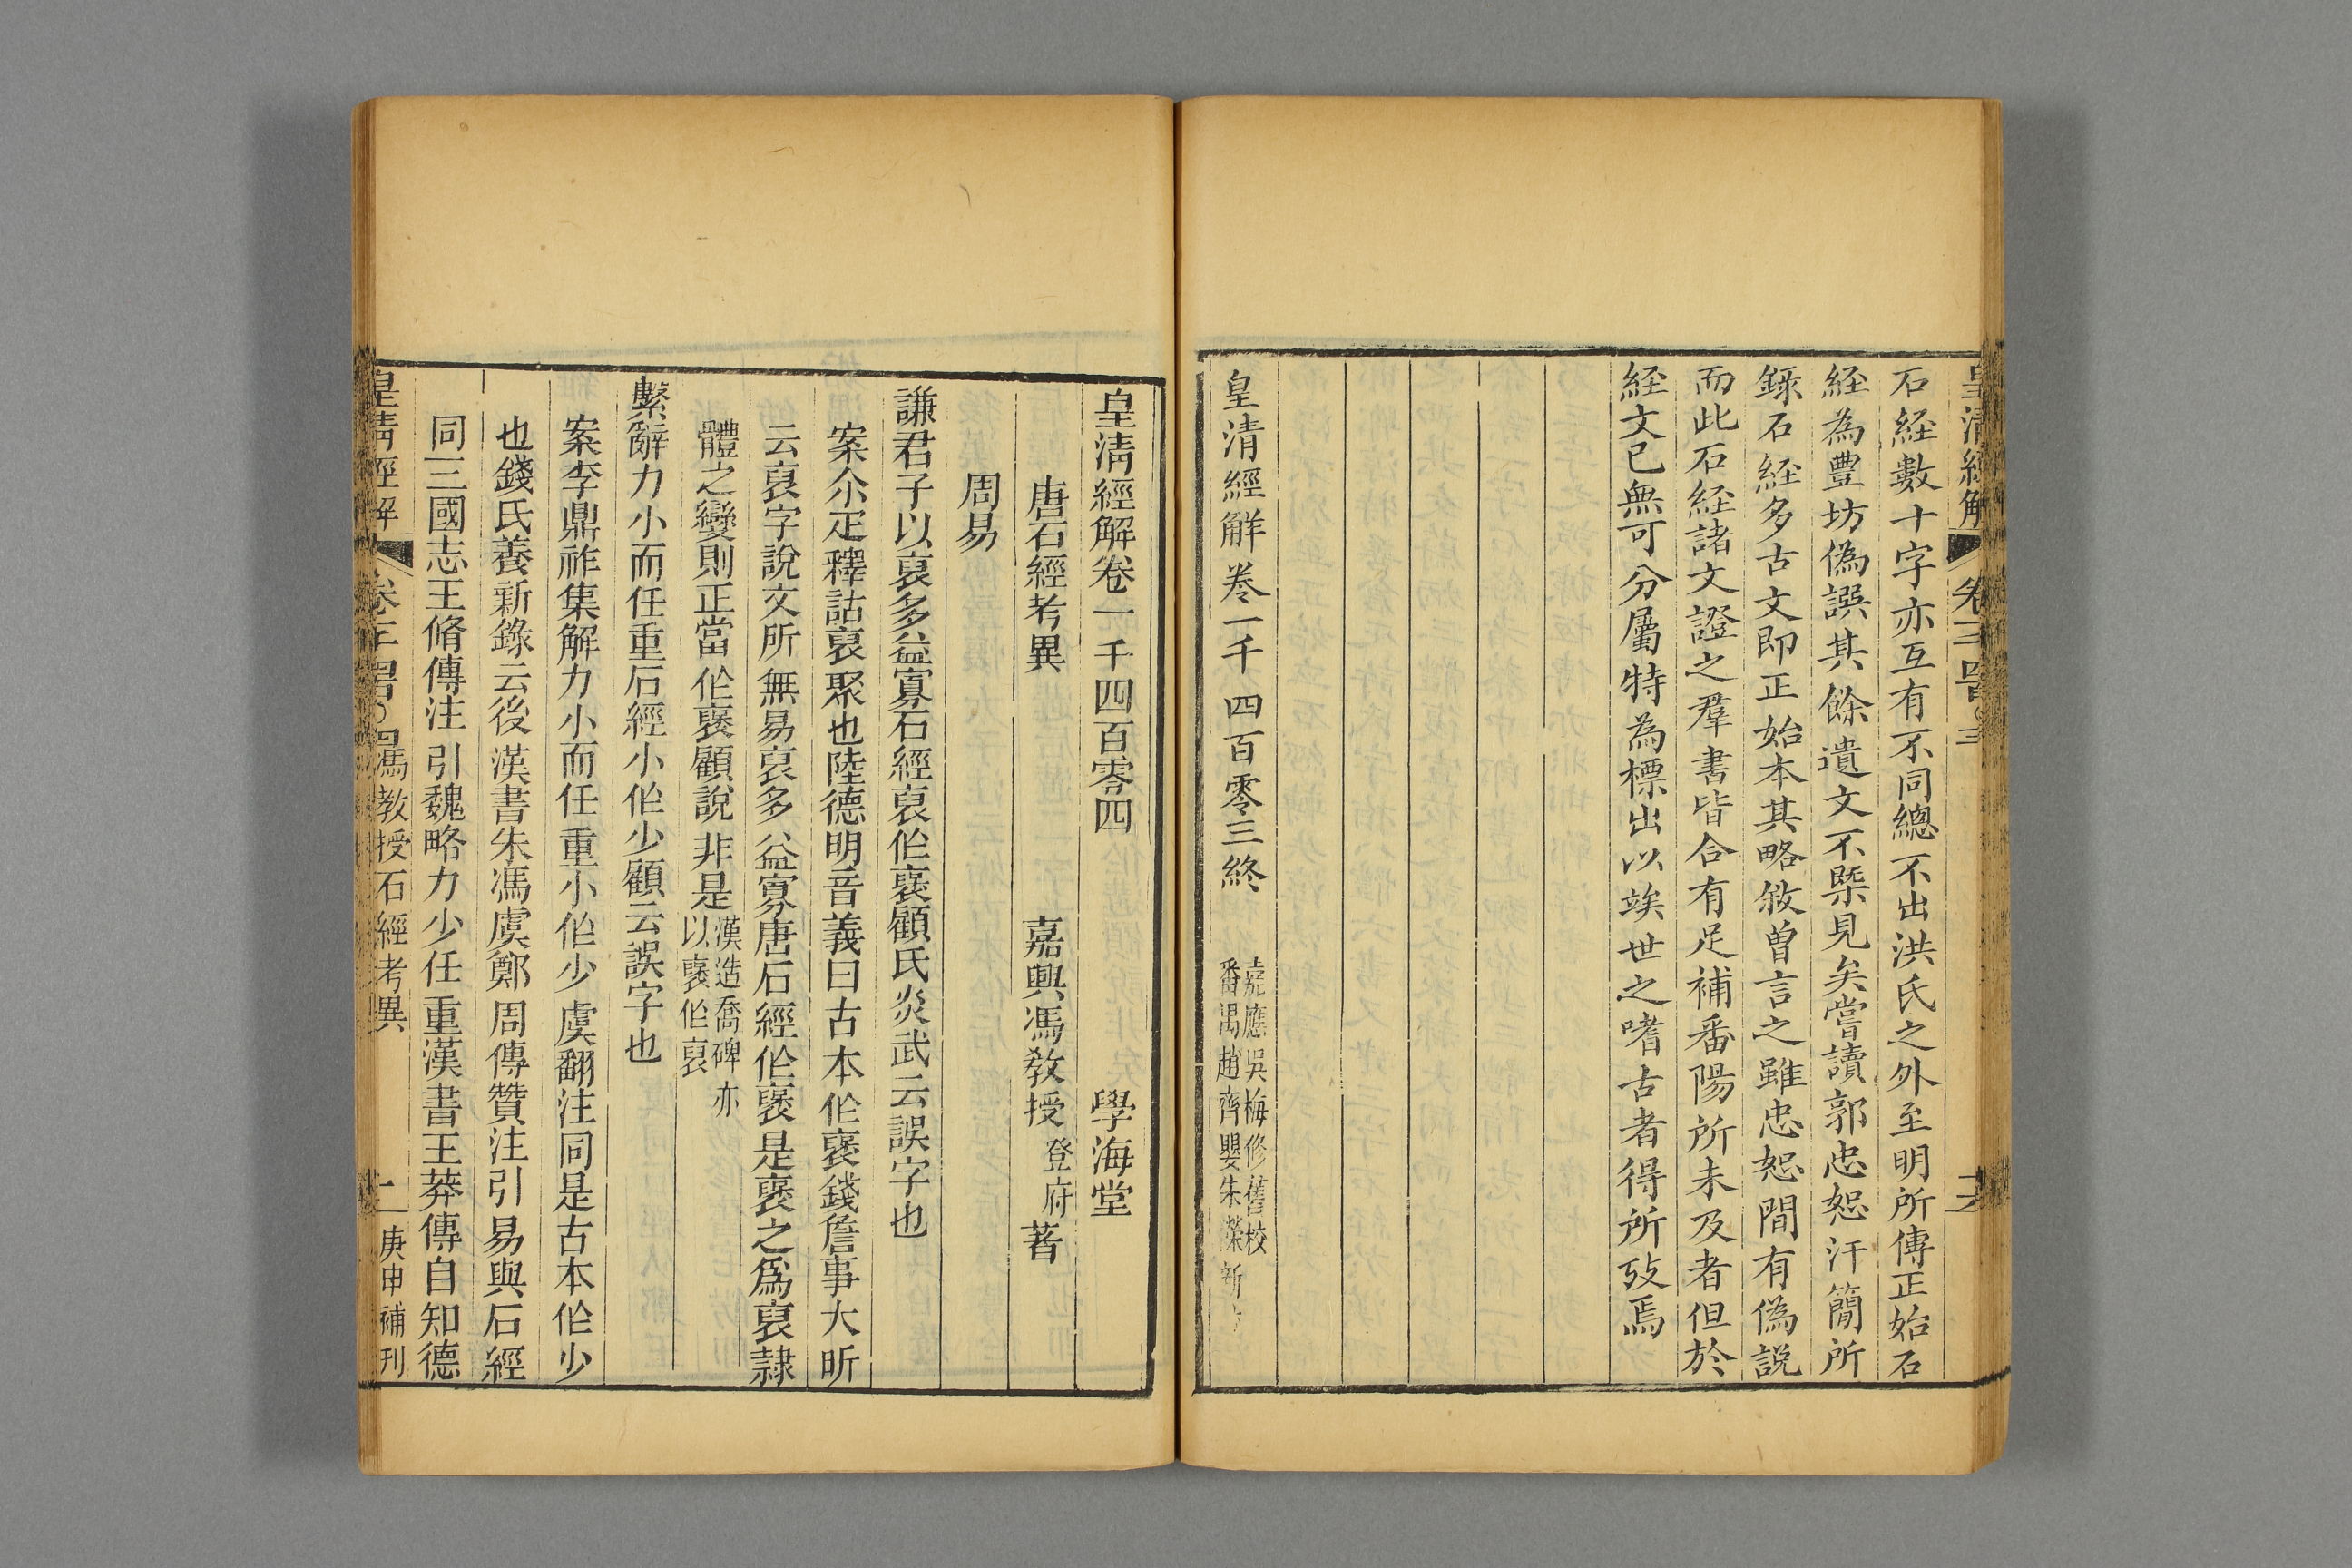 皇清經解 卷千四百三
石経數十字亦互有不同總不出洪氏之外至明所傳正始石
経為豐坊偽譔其餘遺文不槩見矣嘗讀郭忠恕汗簡所
録石経多古文即正始本其略敘曾言之雖忠恕間有偽説
而此石経諸文證之羣書皆合有足補番陽所未及者但於
経文已無可分屬特為標出以竢世之嗜古者得所攷焉
皇清經解卷一千四百零三終
嘉應吳梅修舊校
番禺趙齊嬰朱榮新
皇淸經解卷一千四百零四 學海堂
唐石經考異 嘉興馮敎授登府著
周易
謙君子以裒多益寡石經裒作褒顧氏炎武云誤字也
案尒疋釋詁裒聚也陸德明音義曰古本作褒錢詹事大昕
云裒字說文所無易裒多益寡唐石經作褒是褒之爲裒隷
體之變則正當作褒顧說非是漢造喬碑亦
以褒作裒
繫辭力小而任重石經小作少顧云誤字也
案李鼎祚集解力小而任重小作少虞翻注同是古本作少
也錢氏養新錄云後漢書朱馮虞鄭周傳贊注引易與石經
同三國志王脩傳注引魏略力少任重漢書王莽傳自知德
皇清經解 馮敎授石經考異 一 庚申補刊